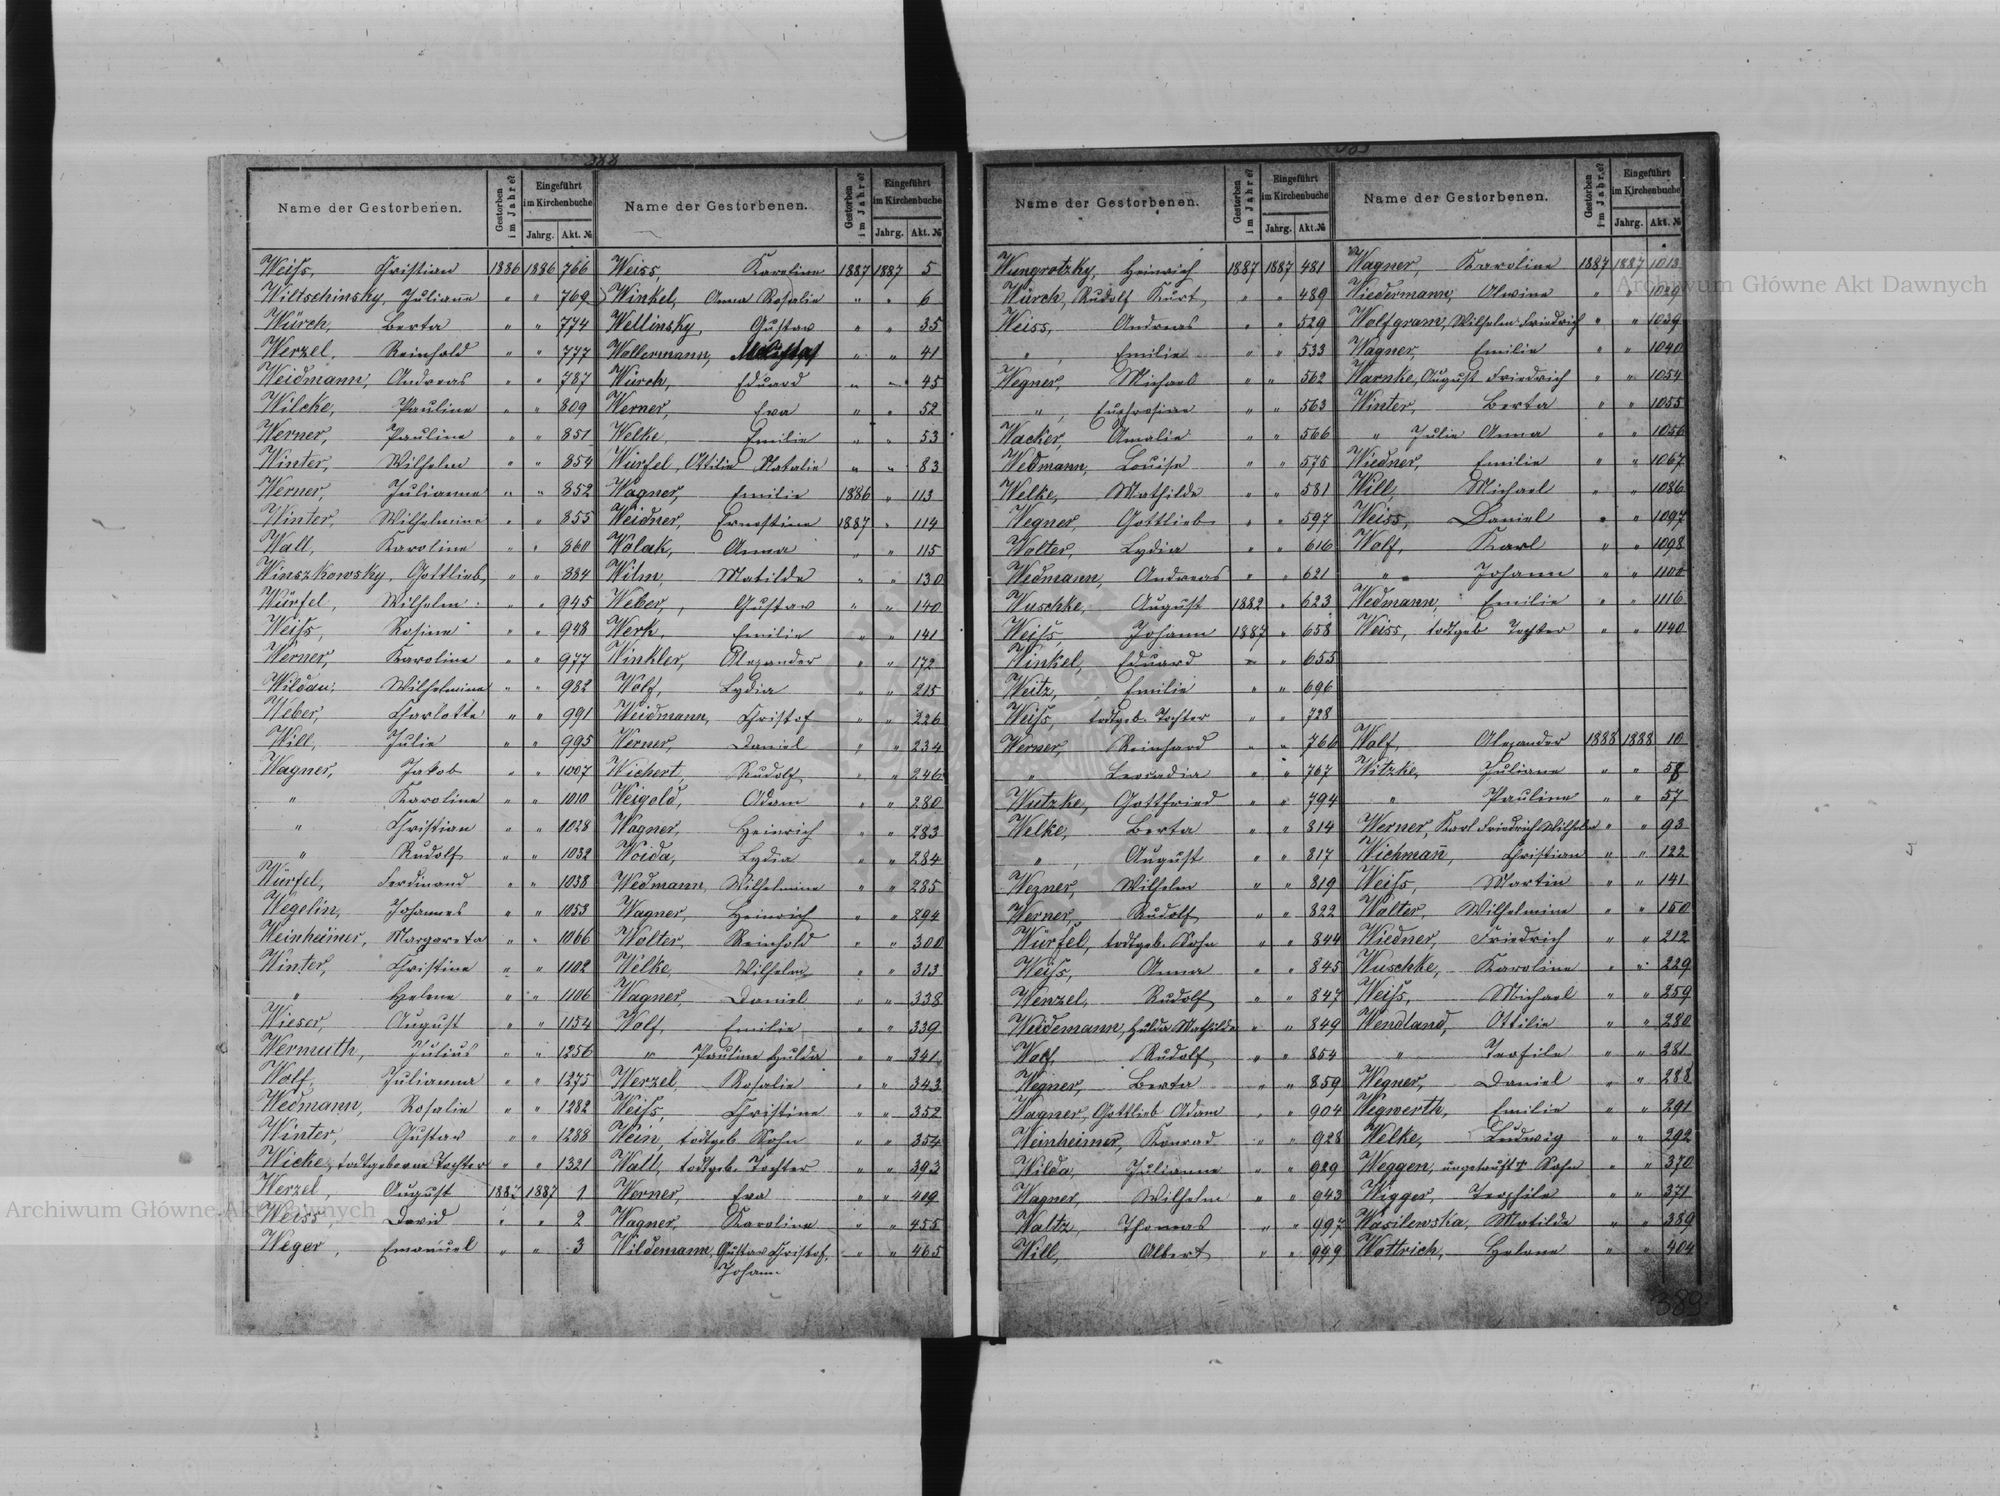 388
Name der Gestorbenen. Gestorben im Jahre? Eingeführt im Kirchenbuche Jahrg. Akt. №
Weiſs, Christian 1886 1886 766
Wiltschinsky, Juliane " " 769
Würch, Berta " " 774
Werzel, Reinhold " " 777
Weidmann, Andreas " " 787
Wilcke, Pauline " " 809
Werner, Pauline " " 851
Winter, Wilhelm " " 854
Werner, Julianna " " 852
Winter, Wilhelmine " " 855
Wall, Karoline " " 860
Winszkowsky, Gottlieb " " 884
Würfel, Wilhelm " " 945
Weiſs, Rosine " " 948
Werner, Karoline " " 977
Wildau, Wilhelmine " " 982
Weber, Charlotte " " 991
Will, Julie " " 995
Wagner, Jakob " " 1007
" Karoline " " 1010
" Christian " " 1028
" Rudolf " " 1032
Würfel, Ferdinand " " 1038
Wegelin, Johannes " " 1053
Weinheimer, Margareta " " 1066
Winter, Christine " " 1102
" Helene " " 1106
Wieser, August " " 1154
Wermuth, Julius " " 1256
Wolf, Julianna " " 1275
Wedmann, Rosalie " " 1282
Winter, Gustav " " 1288
Wicke, todtgeborne Tochter " " 1321
Werzel, August 1887 1887 1
Weiss, David " " 2
Weger, Emanuel " " 3
Name der Gestorbenen. Gestorben im Jahre? Eingeführt im Kirchenbuche Jahrg. Akt. №
Weiss, Karoline 1887 1887 5
Winkel, Anna Rosalie " " 6
Wellinsky, Gustav " " 35
Wollermann, " " 41
Würch, Eduard " " 45
Werner, Eva " " 52
Welke, Emilie " " 53
Würfel, Ottilie Natalie " " 83
Wagner, Emilie 1886 " 113
Weidner, Ernestine 1887 " 114
Wolak, Anna " " 115
Wilm, Matilde " " 130
Weber, Gustav " " 140
Werk, Emilie " " 141
Winkler, Alexander " " 172
Wolf, Lydia " " 215
Weidmann, Christof " " 226
Werner, Daniel " " 234
Wichert, Rudolf " " 246
Weigold, Adam " " 280
Wagner, Heinrich " " 283
Woida, Lydia " " 284
Wedmann, Wilhelmine " " 285
Wagner, Heinrich " " 294
Wolter, Reinhold " " 300
Welke, Wilhelm " " 313
Wagner, Daniel " " 338
Wolf, Emilie " " 339
" Pauline Hulda " " 341
Werzel, Rosalie " " 343
Weiſs, Christine " " 352
Wein, todtgeb. Sohn " " 354
Wall, todtgeb. Tochter " " 393
Werner, Eva " " 419
Wagner, Karoline " " 455
Wildemann, Gustav Christof, " " 465
Johann
Name der Gestorbenen. Gestorben im Jahre? Eingeführt im Kirchenbuche Jahrg. Akt. №
Wungrotzky, Heinrich 1887 1887 481
Würch, Rudolf Kurt " " 489
Weiss, Andreas " " 529
" , Emilie " " 533
Wegner, Michael " " 562
" , Euphrosine " " 563
Wacker, Amalie " " 566
Wedmann, Louise " " 575
Welke, Mathilde " " 581
Wegner, Gottlieb " " 597
Wolter, Lydia " " 616
Wedmann, Andreas " " 621
Wuschke, August 1882 " 623
Weiſs, Johann 1887 " 658
Winkel, Eduard " " 655
Weitz, Emilie " " 696
Weiſs, todtgeb. Tochter " " 728
Werner, Reinhard " " 766
" Leocadia " " 767
Wutzke, Gottfried " " 794
Welke, Berta " " 814
" , August " " 817
Wezner, Wilhelm " " 819
Werner, Rudolf " " 822
Würfel, todtgeb. Sohn " " 844
Weiſs, Anna " " 845
Wenzel, Rudolf " " 847
Weidemann, Hulda Mathilde " " 849
Wolf, Rudolf " " 854
Wegner, Berta " " 859
Wagner, Gottlieb Adam " " 904
Weinheimer, Konrad " " 928
Wilda, Julianne " " 929
Wagner, Wilhelm " " 943
Waltz, Thomas " " 997
Will, Albert " " 999
Name der Gestorbenen. Gestorben im Jahre? Eingeführt im Kirchenbuche Jahrg. Akt. №
Wagner, Karoline 1887 1887 1013
Wiedermann, Alwine " " 1029
Wolfgram, Wilhelm Friedrich " " 1039
Wagner, Emilie " " 1040
Warnke, August Friedrich " " 1054
Winter, Berta " " 1055
" Julie Anna " " 1056
Wiedner, Emilie " " 1067
Will, Michael " " 1086
Weiss, Daniel " " 1097
Wolf, Karl " " 1098
" Johann " " 1100
Wedmann, Emilie " " 1116
Weiss, todtgeb Tochter " " 1140
Wolf, Alexander 1888 1888 10
Witzke, Juliane " "
" Pauline " " 57
Werner, Karl Friedrich Wilhelm " " 93
Wichmañ, Christian " " 122
Weiſs, Martin " " 141
Wolter, Wilhelmine " " 150
Wiedner, Friedrich " " 212
Wuschke, Karoline " " 229
Weiſs, Michael " " 259
Wendland, Ottilie " " 280
" Teofile " " 281
Wegner, Daniel " " 288
Wegwerth, Emilie " " 291
Welke, Ludwig " " 292
Weggen, ungetauft Sohn " " 370
Wigger, Teophile " " 371
Wasilewska, Matilde " " 389
Wottrich, Helene " " 404
389
Archiwum Główne Akt Dawnych
Archiwum Główne Akt Dawnych